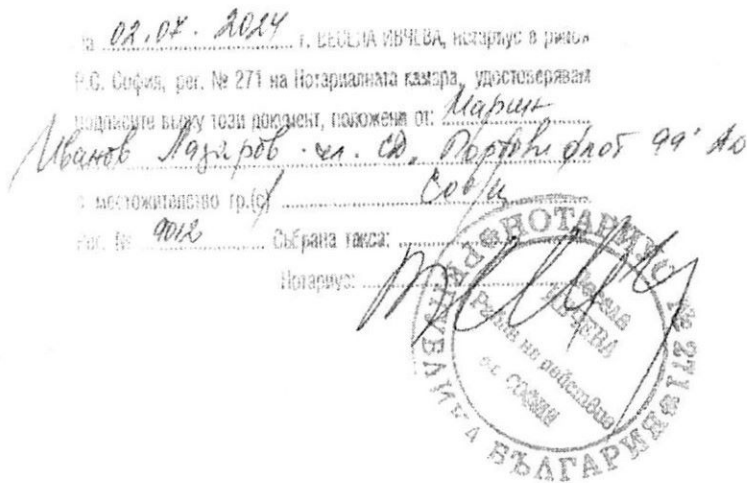 На 02.07.2024 г. ВЕСЕЛА ИВЧЕВА, нотариус в район
Р.С. София, рег. № 271 на Нотариалната камара, удостоверявам
подписите върху този документ, положени от: Марин
Иванов Лазаров - чл. СД, Портови флот 99' АД
с местожителство гр.(с)
Рег. № 9012 Събрана такса:
Нотариус:
НОТАРИУС № 271 РЕПУБЛИКА БЪЛГАРИЯ
Весела
ИВЧЕВА
Район на действие
р.с. СОФИЯ